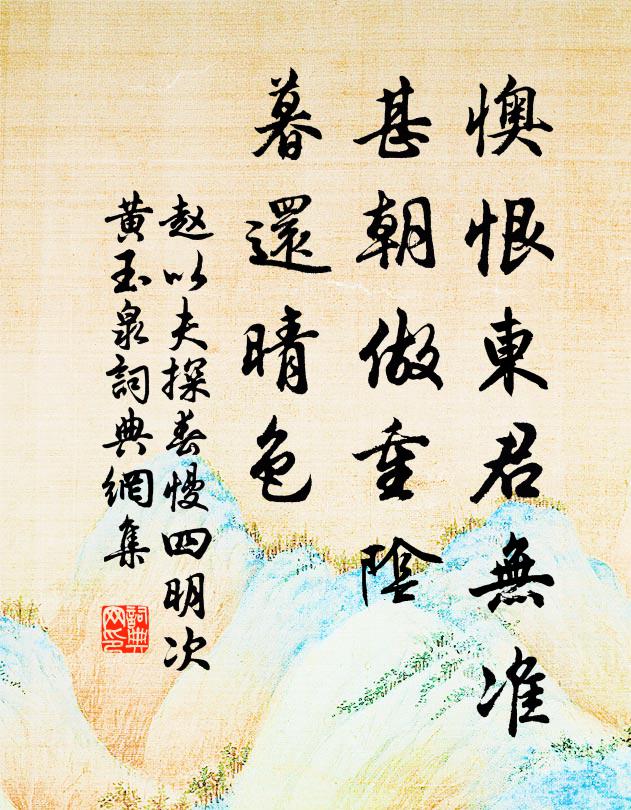 懊恨東君無准
甚朝做重陰
暮還晴色
赵以夫探春慢四明次
黄玉泉詞典網集
詞典网印